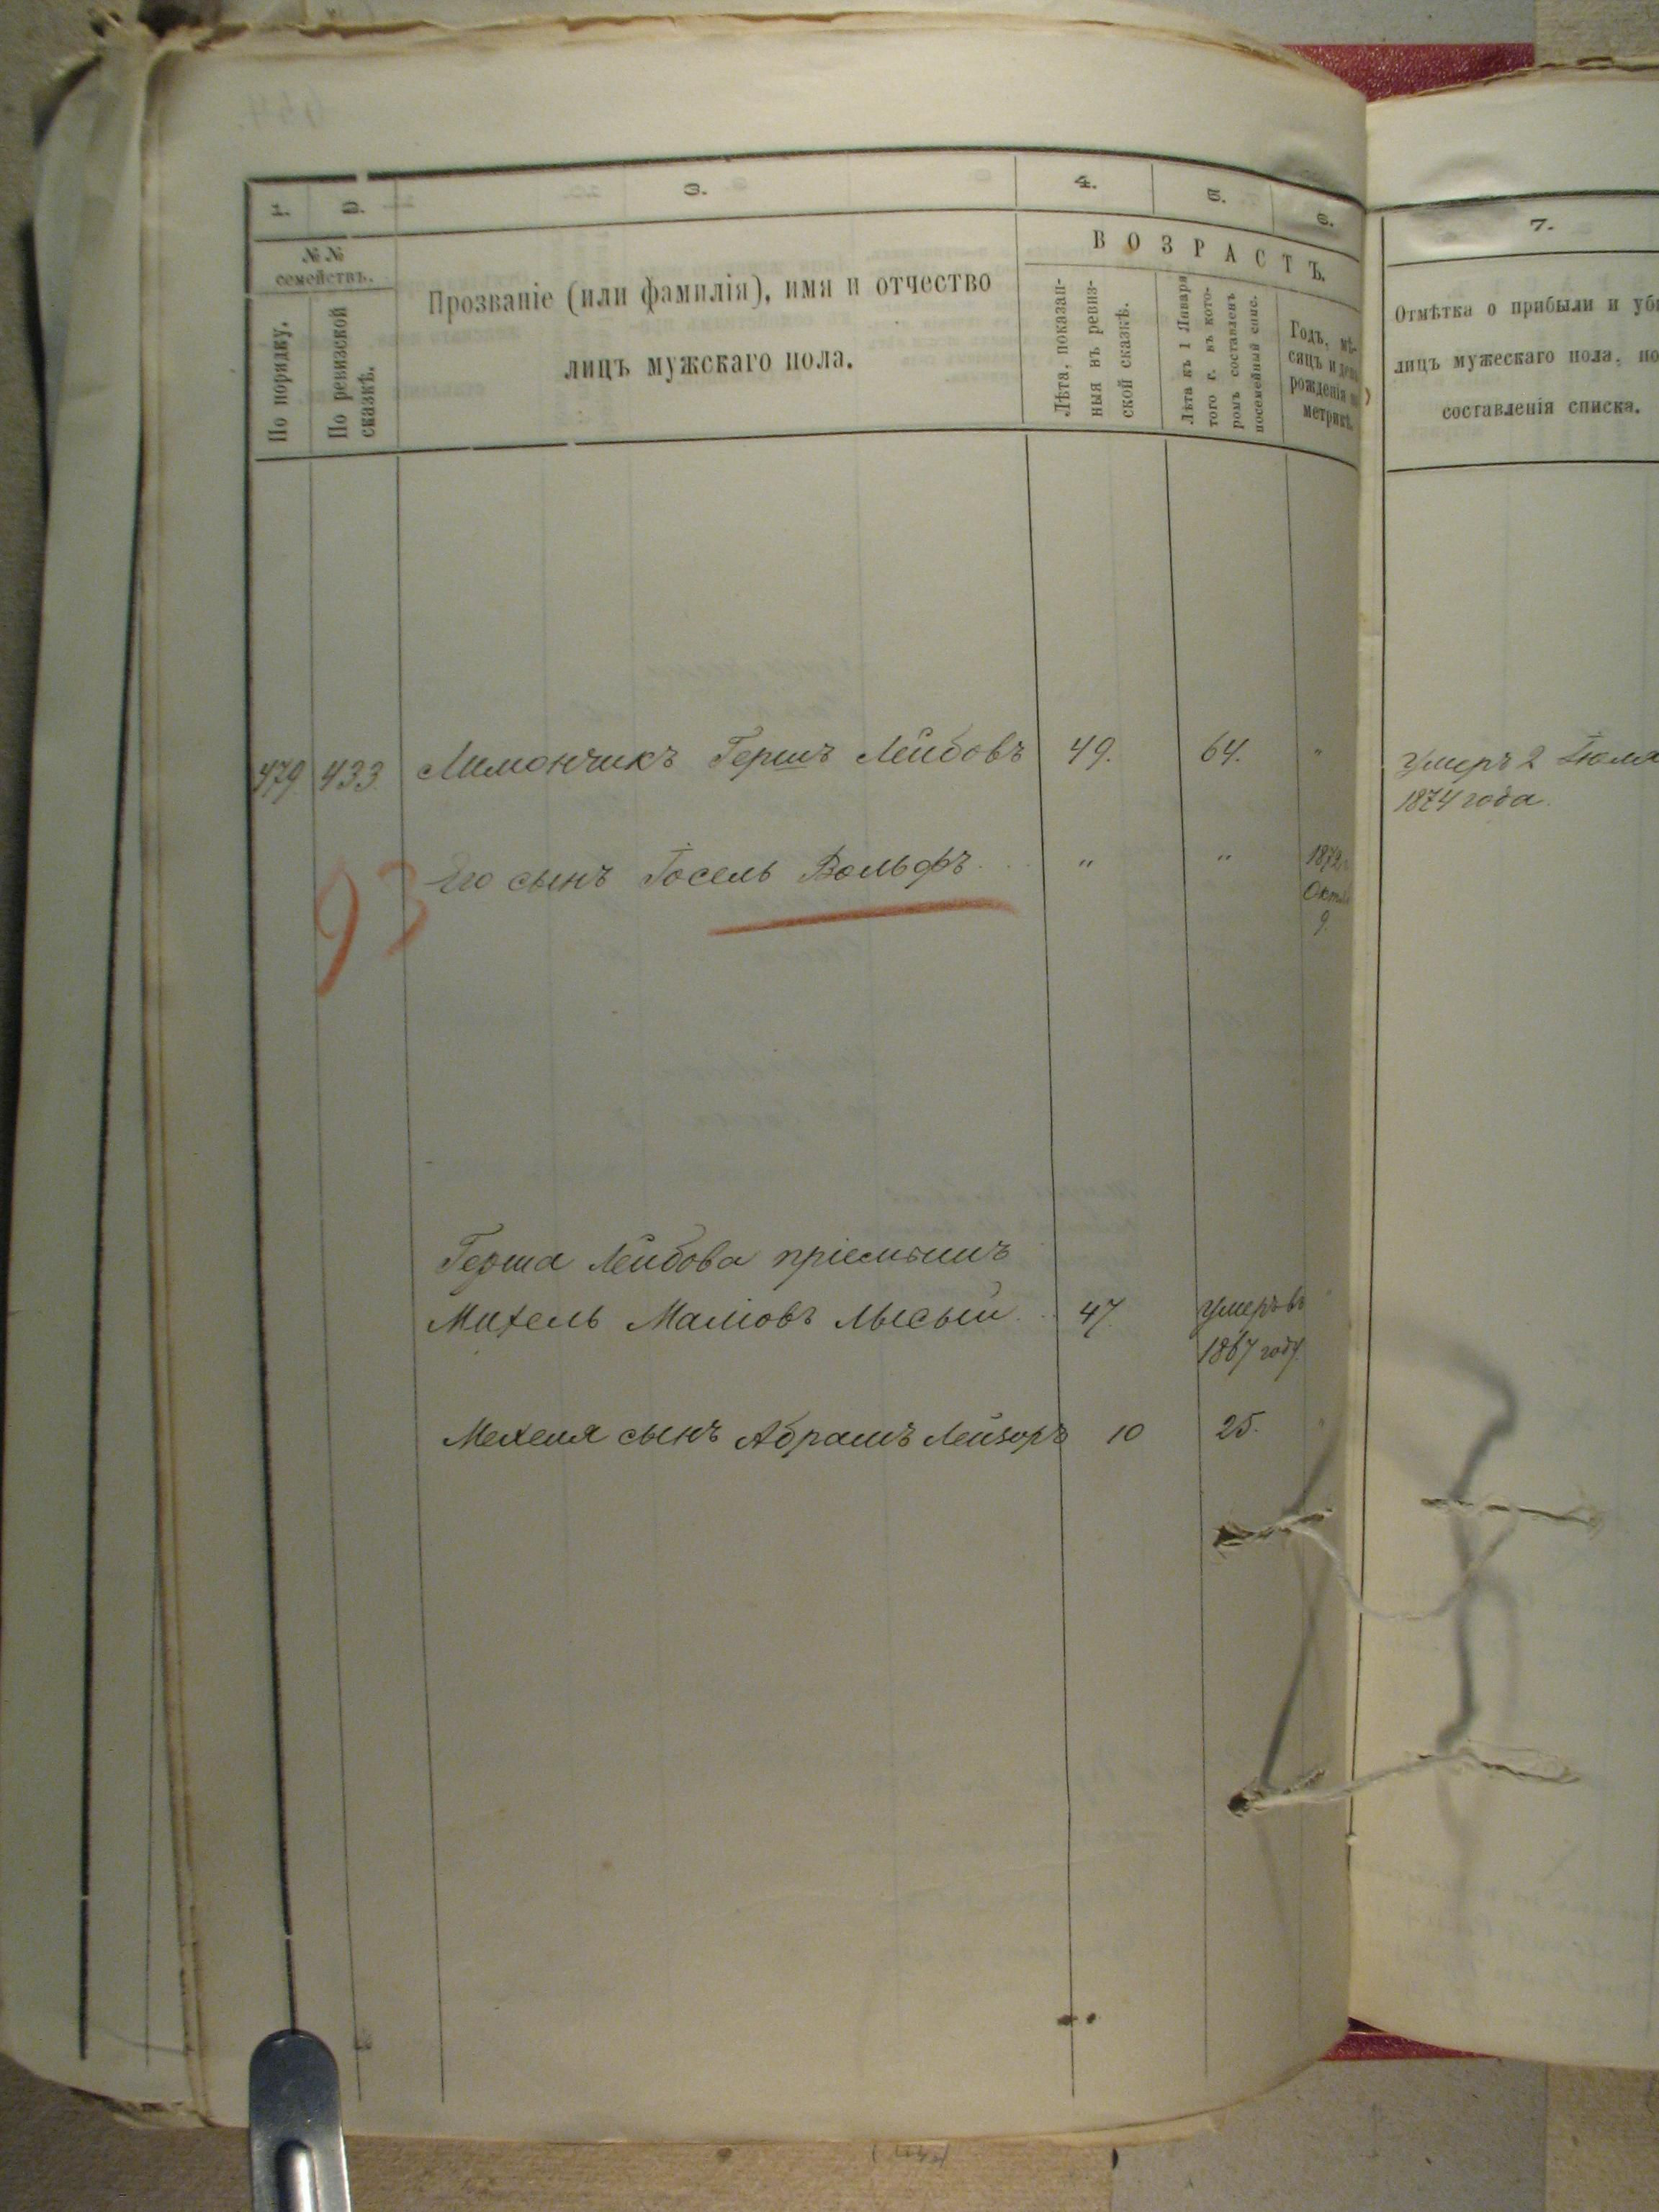 1. 2. 3. 4. 5. 6. 7.
№№ семействъ.
По порядку.
По ревизской сказкѣ.
Прозваніе (или фамилія), имя и отчество
лицъ мужскаго пола.
ВОЗРАСТЪ.
Лѣта, показан-
ныя въ ревиз-
ской сказкѣ.
Лѣта къ 1 Января
того г. въ кото-
ромъ составленъ
посемейный спис.
Годъ, мѣ-
сяцъ и день
рожденія по
метрикѣ.
Отмѣтка о прибыли и
лицъ мужескаго пола, по
составленія списка.
479 433. Лимончикъ Гершъ Лейбовъ 49. 64. "
Умеръ 2 Іюля
1874 года.
93
Его сынъ Іосель Вольфъ " "
1872
Окт
9
Герша Лейбова пріемышъ
Михель Маліовъ Лысый 47.
Умеръ въ
1867 году.
Мехеля сынъ Абрамъ Лейзоръ 10 25. "